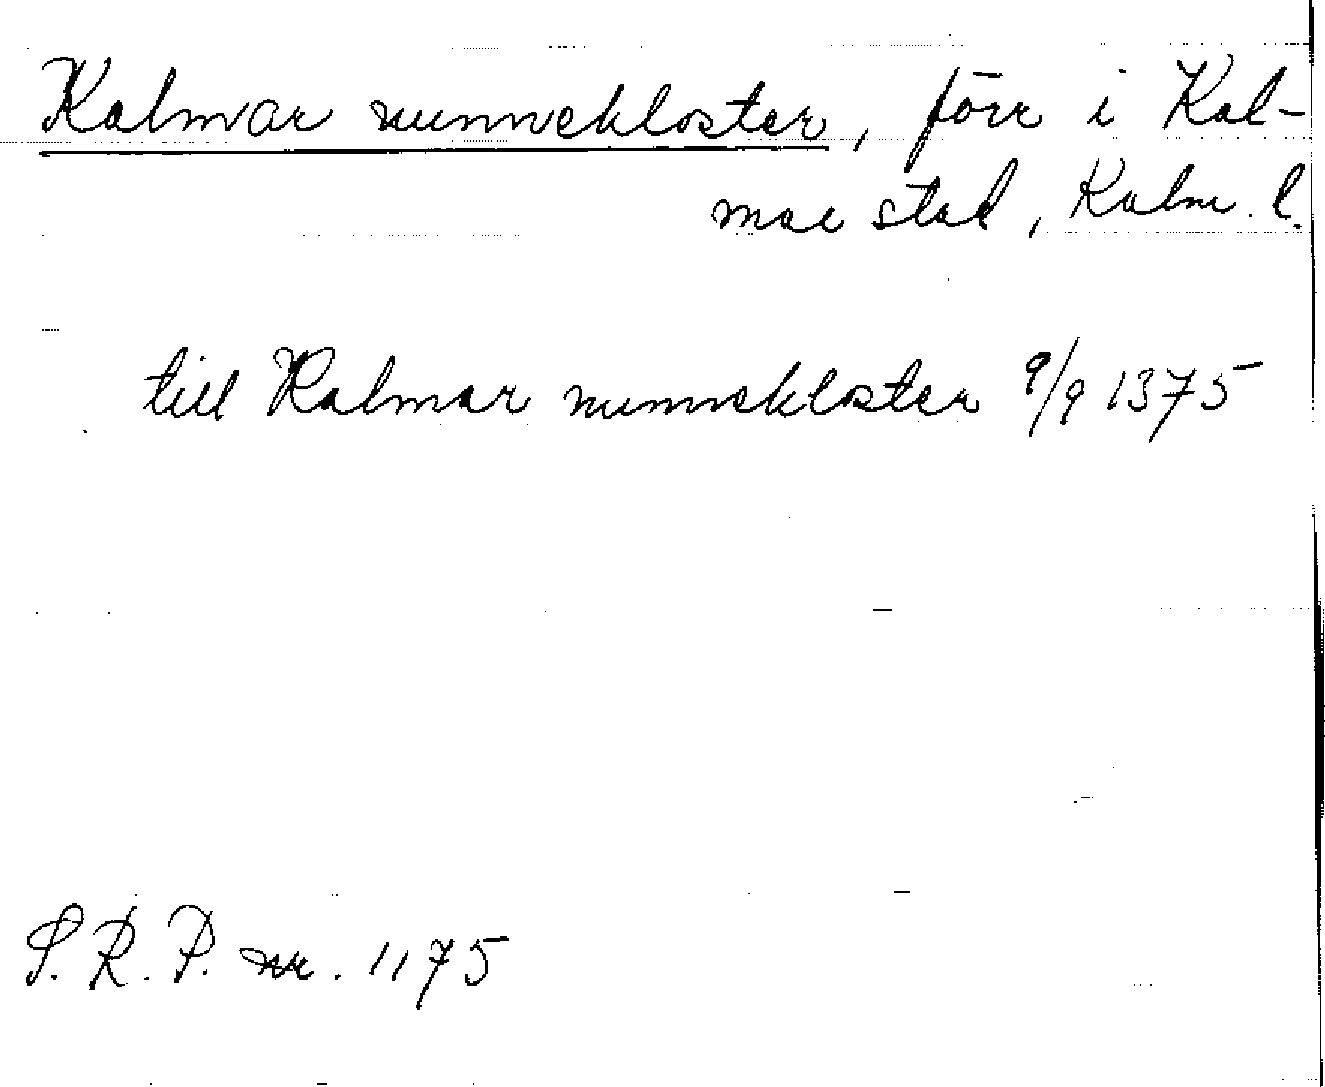 Kalmar nunnekloster, förr i Kal-
mar stad, Kalm. l.
till Kalmar nunnekloster 9/9 1375
S.R.P. nr. 1175